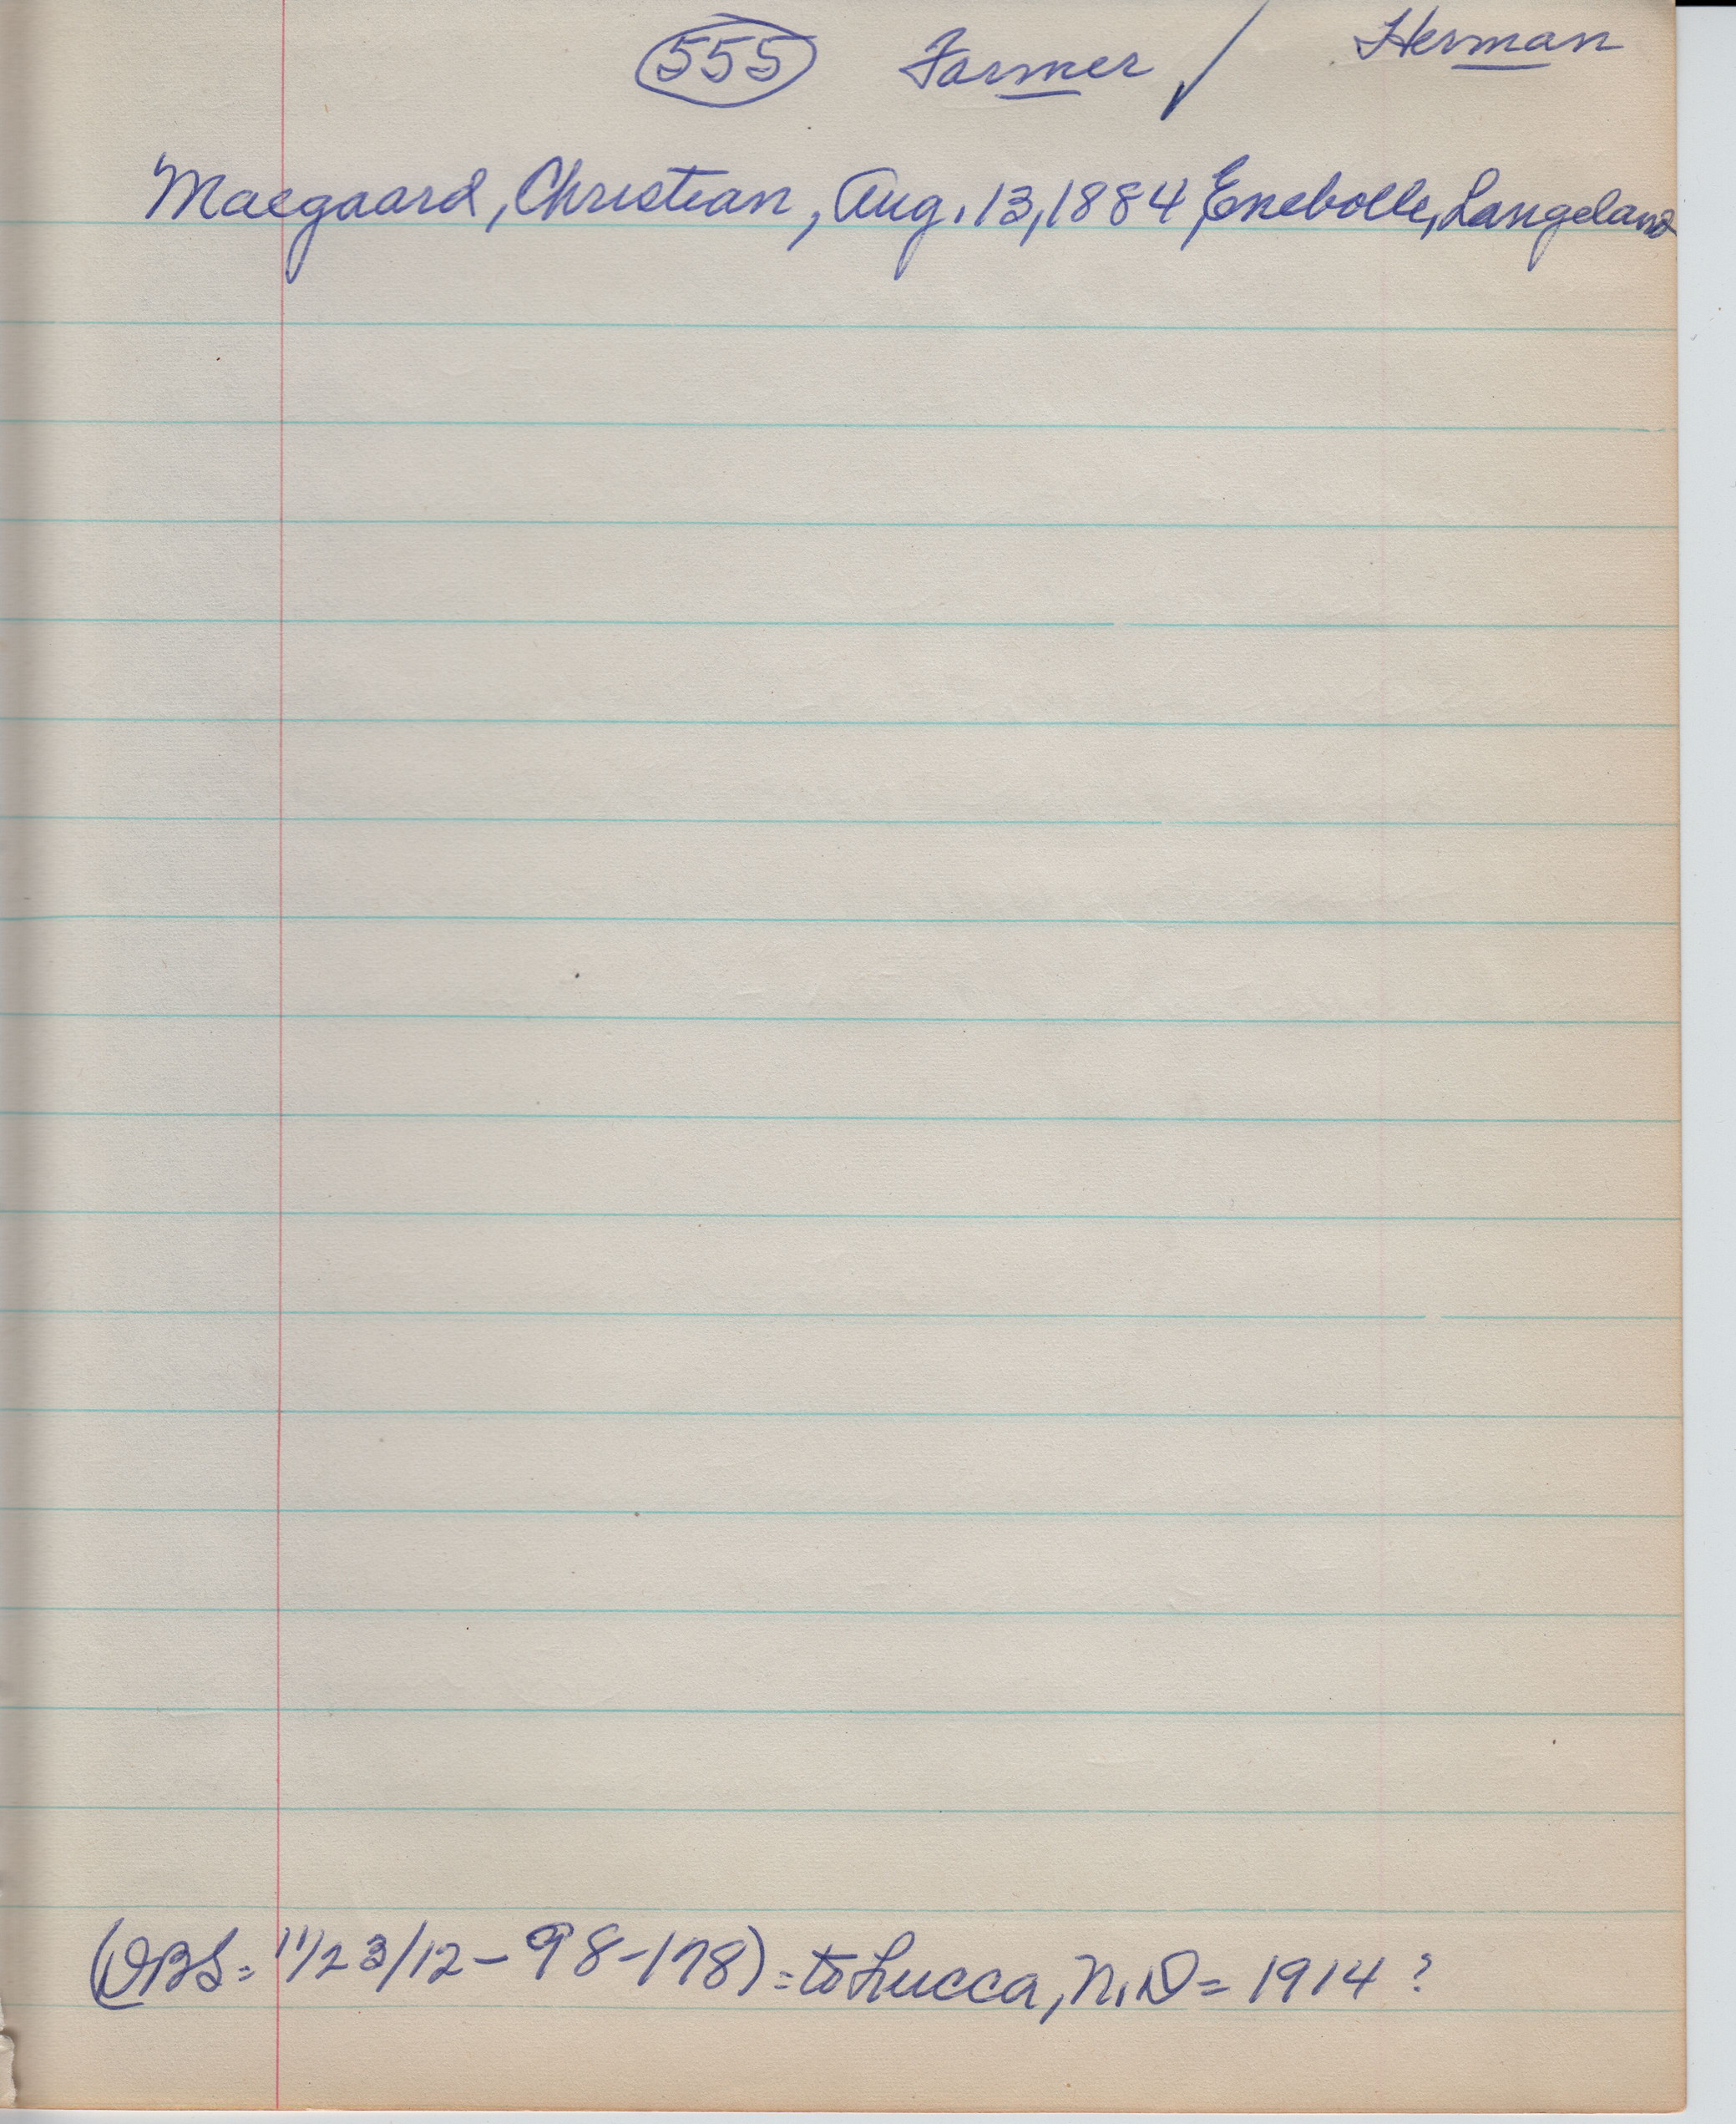 555 Farmer / Herman
Maegaard, Christian, Aug. 13, 1884, Enebolle, Langeland
(DBS = 11/23/12 - 98-178) = to Lucca, N.D = 1914 ?